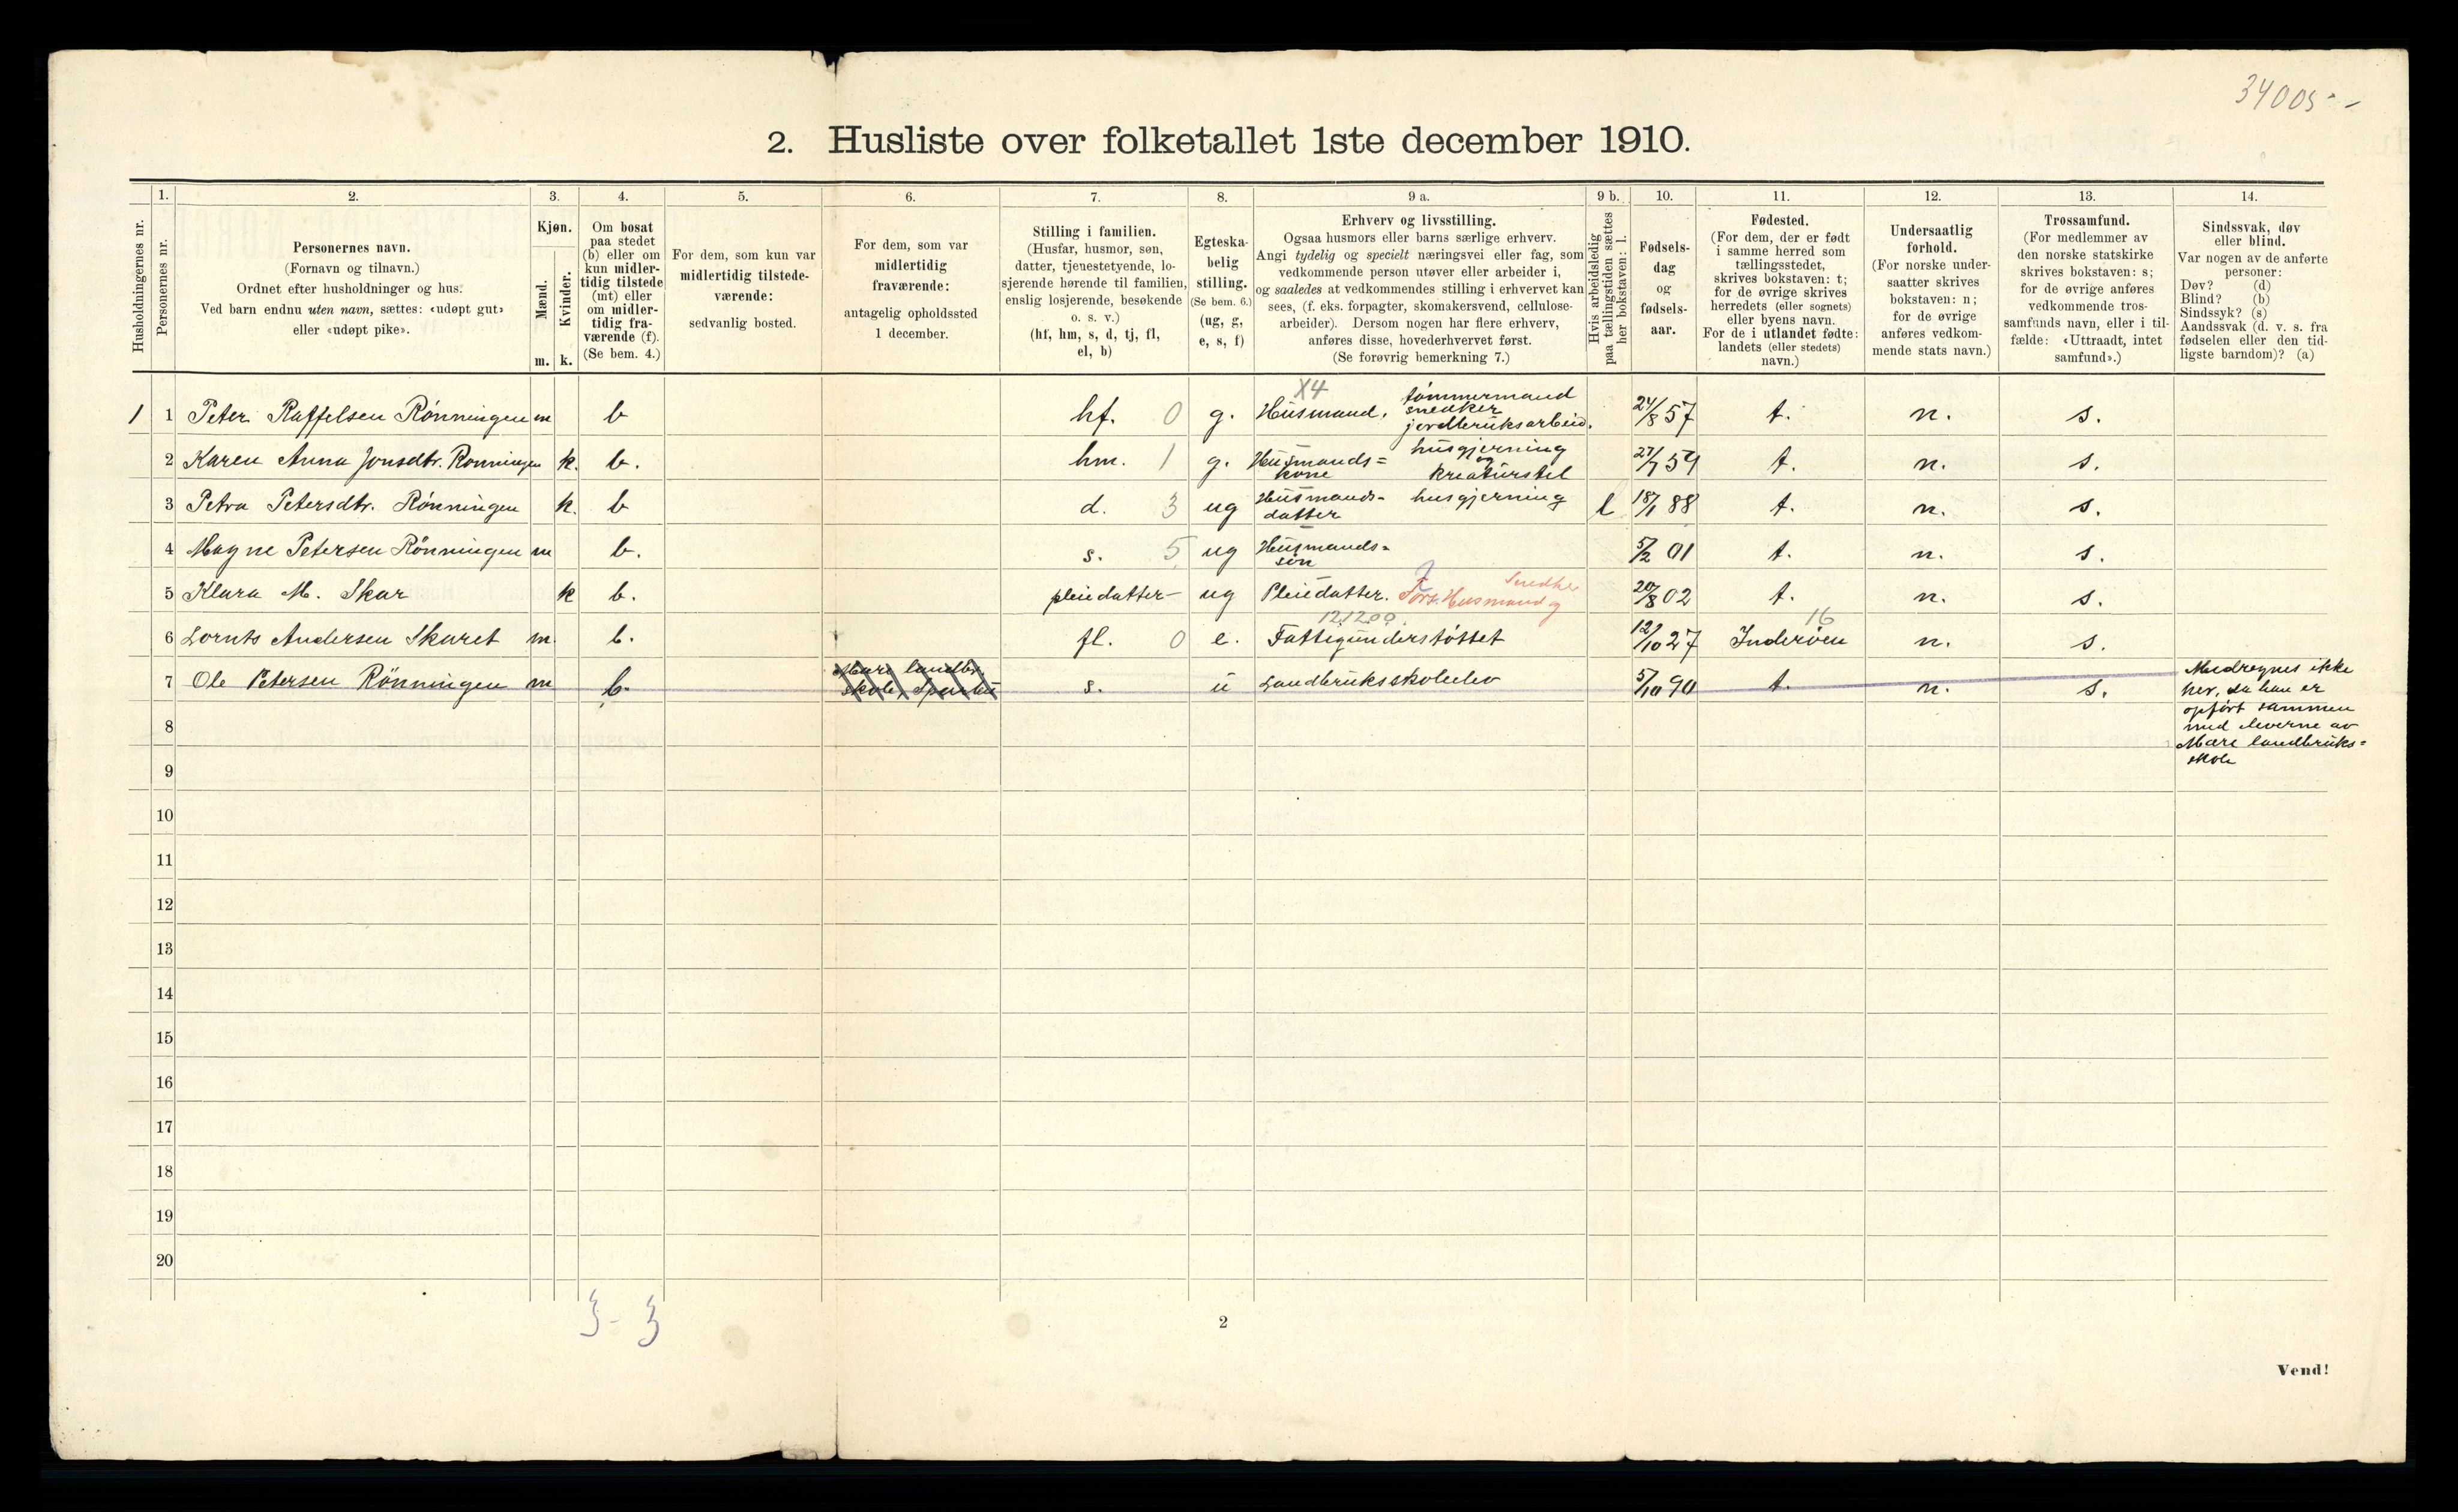 34005 - -
2. Husliste over folketallet 1ste december 1910.
Husholdningernes nr.
1.
Personernes nr.
2.
Personernes navn.
(Fornavn og tilnavn.)
Ordnet efter husholdninger og hus.
Ved barn endnu uten navn, sættes: «udøpt gut»
eller «udøpt pike».
3.
Kjøn.
Mænd.
Kvinder.
m. k.
4.
Om bosat
paa stedet
(b) eller om
kun midler-
tidig tilstede
(mt) eller
om midler-
tidig fra-
værende (f).
(Se bem. 4.)
5.
For dem, som kun var
midlertidig tilstede-
værende:
sedvanlig bosted.
6.
For dem, som var
midlertidig
fraværende:
antagelig opholdssted
1 december.
7.
Stilling i familien.
(Husfar, husmor, søn,
datter, tjenestetyende, lo-
sjerende hørende til familien,
enslig losjerende, besøkende
o. s. v.)
(hf, hm, s, d, tj, fl,
el, b)
8.
Egteska-
belig
stilling.
(Se bem. 6.)
(ug, g,
e, s, f)
9 a.
Erhverv og livsstilling.
Ogsaa husmors eller barns særlige erhverv.
Angi tydelig og specielt næringsvei eller fag, som
vedkommende person utøver eller arbeider i,
og saaledes at vedkommendes stilling i erhvervet kan
sees, (f. eks. forpagter, skomakersvend, cellulose-
arbeider). Dersom nogen har flere erhverv,
anføres disse, hovederhvervet først.
(Se forøvrig bemerkning 7.)
9 b.
Hvis arbeidsledig
paa tællingstiden sættes
her bokstaven: l.
10.
Fødsels-
dag
og
fødsels-
aar.
11.
Fødested.
(For dem, der er født
i samme herred som
tællingsstedet,
skrives bokstaven: t;
for de øvrige skrives
herredets (eller sognets)
eller byens navn.
For de i utlandet fødte:
landets (eller stedets)
navn.)
12.
Undersaatlig
forhold.
(For norske under-
saatter skrives
bokstaven: n;
for de øvrige
anføres vedkom-
mende stats navn.)
13.
Trossamfund.
(For medlemmer av
den norske statskirke
skrives bokstaven: s;
for de øvrige anføres
vedkommende tros-
samfunds navn, eller i til-
fælde: «Uttraadt, intet
samfund».)
14.
Sindssvak, døv
eller blind.
Var nogen av de anførte
personer:
Døv? (d)
Blind? (b)
Sindssyk? (s)
Aandssvak (d. v. s. fra
fødselen eller den tid-
ligste barndom)? (a)
1 1 Peter Raffelsen Rönningen m b hf. 0 g. X4 Husmand, tömmermand snedker jordbruksarbeid. 24/8 57 t. n. s.
2 Karen Anna Jonsdtr. Rönningen k. b. hm. 1 g. Husmands= kone husgjerning og kreaturstel 27/7 54 t. n. s.
3 Petra Petersdtr. Rönningen k. b d. 3 ug Husmands- datter husgjerning l 18/1 88 t. n. s.
4 Magne Petersen Rönningen m b. s. 5 ug Husmands= sön 5/2 01 t. n. s.
5 Klara M. Skar k b. pleiedatter- ug Pleiedatter. Fors. Husmand og Snedker 20/8 02 t. n. s.
6 Lornts Andersen Skaret m. b. fl. 0 e. 121200 Fattigunderstöttet 12/10 27 16 Inderöen n. s.
7 Ole Petersen Rönningen m b. Mære landbr. skole, Sparbu s. u Landbruksskoleelev 5/10 90 t. n. s. Medregnes ikke
her, da han er
opfört sammen
med eleverne av
Mære landbruks=
skole
8
9
10
11
12
13
14
15
16
17
18
19
20
3 - 3
2
Vend!